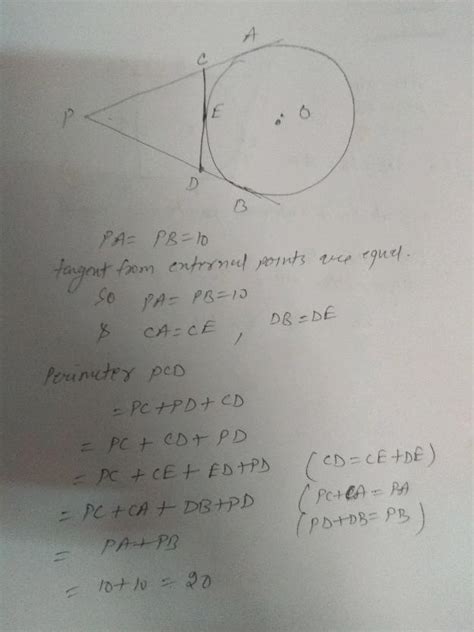 A
C
P
E
O
D
B
PA = PB = 10
tangent from external points are equal.
So PA = PB = 10
& CA = CE , DB = DE
Perimeter PCD
= PC + PD + CD
= PC + CD + PD
= PC + CE + ED + PD (CD = CE + DE)
= PC + CA + DB + PD (PC + CA = PA
= PA + PB (PD + DB = PB)
= 10 + 10 = 20